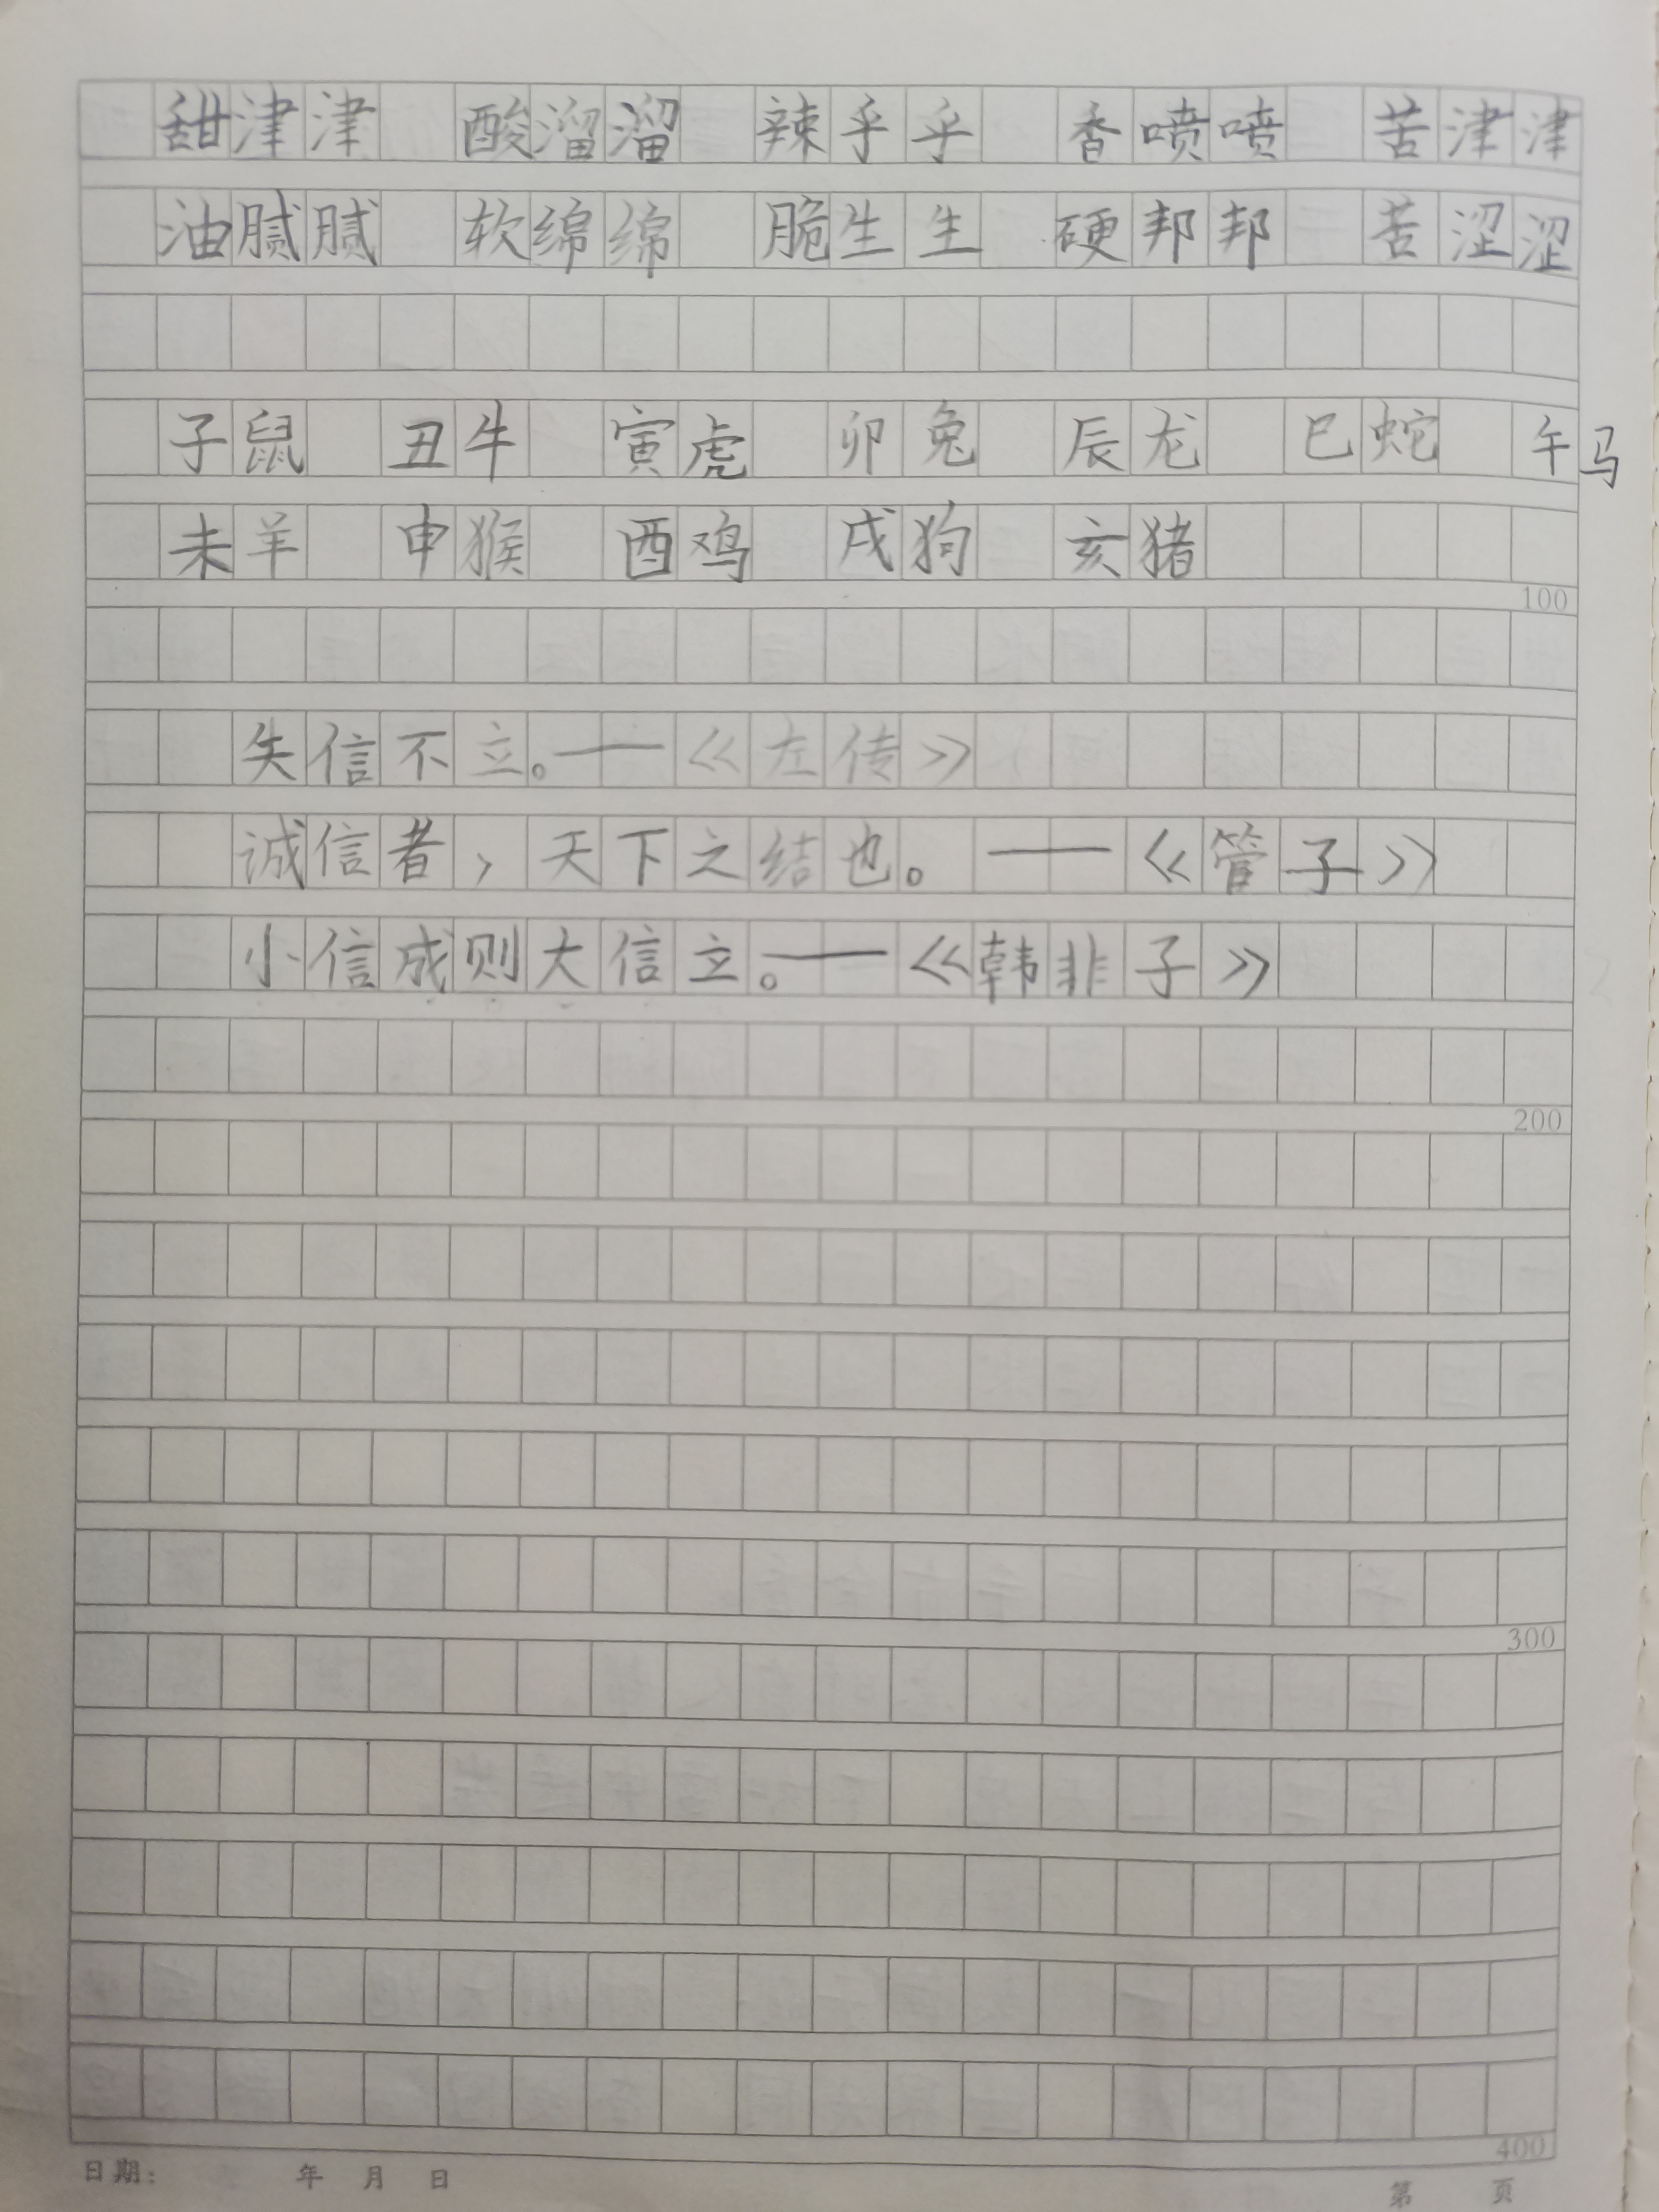 甜津津 酸溜溜 辣乎乎 香喷喷 苦津津
油腻腻 软绵绵 脆生生 硬邦邦 苦涩涩
子鼠 丑牛 寅虎 卯兔 辰龙 巳蛇 午马
未羊 申猴 酉鸡 戌狗 亥猪
100
失信不立。——《左传》
诚信者，天下之结也。——《管子》
小信成则大信立。——《韩非子》
200
300
400
日期： 年 月 日 第 页